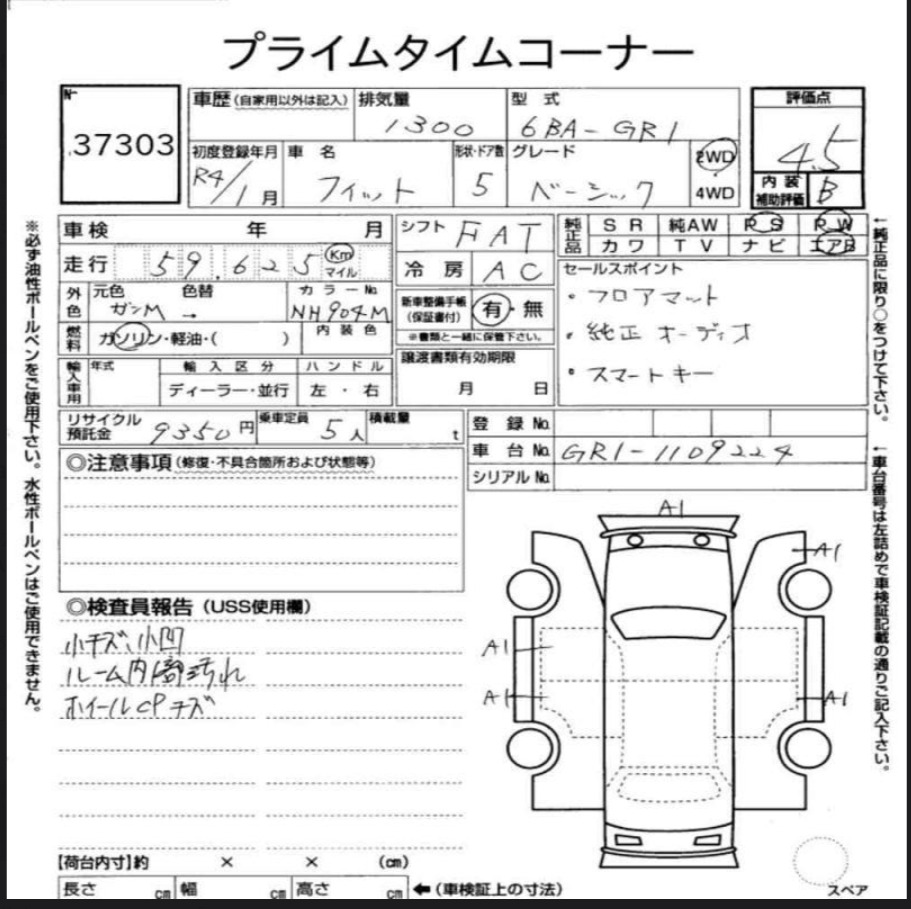 プライムタイムコーナー
No
37303
車歴(自家用以外は記入) 排気量 1300 型式 6BA-GR1
評価点 4.5
初度登録年月 R4/1月 車名 フィット 形状・ドア数 5 グレード ベーシック 2WD 4WD
内装補助評価 B
車検 年 月 シフト FAT 純正品 SR 純AW PS PW
カワ TV ナビ エアB
走行 59.625 Km マイル 冷房 AC セールスポイント
外色 元色 ガンM 色替 → カラーNo. NH904M
新車整備手帳(保証書付) 有・無
※書類と一緒に保管下さい。
・フロアマット
・純正オーディオ
・スマートキー
燃料 ガソリン・軽油・( ) 内装色 譲渡書類有効期限
月 日
輸入車用 年式 輸入区分 ハンドル
ディーラー・並行 左・右
リサイクル預託金 9350円 乗車定員 5人 積載量 t 登録No.
車台No. GR1-1109224
シリアルNo.
◎注意事項(修復・不具合箇所および状態等)
◎検査員報告(USS使用欄)
小キズ、小凹
ルーム内 汚れ
ホイールCPキズ
A1
A1
A1
A1
A1
【荷台内寸】約 × × (cm)
長さ cm 幅 cm 高さ cm ←(車検証上の寸法)
スペア
※必ず油性ボールペンをご使用下さい。水性ボールペンはご使用できません。
←純正品に限り○をつけて下さい。
←車台番号は左詰めで車検証記載の通りご記入下さい。